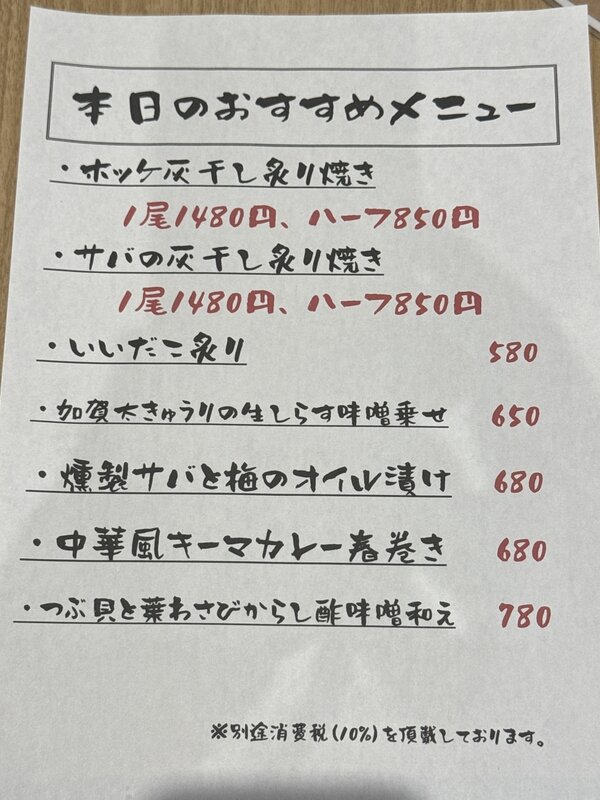 本日のおすすめメニュー
・ホッケ灰干し炙り焼き
1尾1480円、ハーフ850円
・サバの灰干し炙り焼き
1尾1480円、ハーフ850円
・いいだこ炙り 580
・加賀太きゅうりの生しらす味噌乗せ 650
・燻製サバと梅のオイル漬け 680
・中華風キーマカレー春巻き 680
・つぶ貝と葉わさびからし酢味噌和え 780
※別途消費税(10%)を頂戴しております。